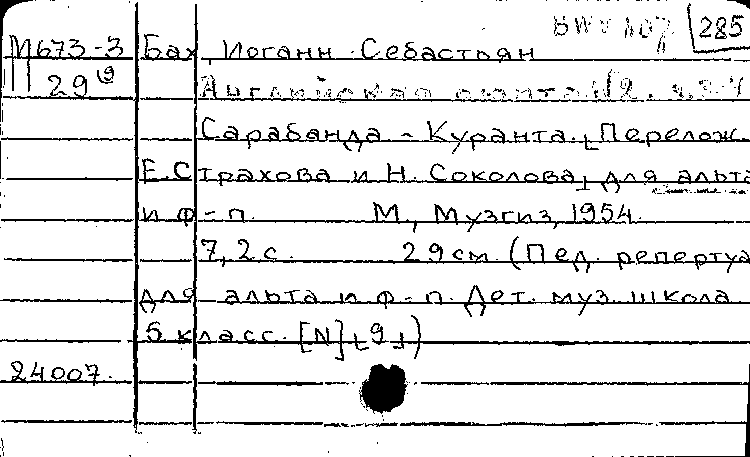 BWV 807 285
М673-3 Бах, Иоганн Себастьян
29 Английская сюита N2. ч.3-4
Сарабанда - Куранта. [Перелож.
Е. Страхова и Н. Соколова] для альта
и ф-п. М., Музгиз, 1954.
7, 2 с. 29 см. (Пед. репертуа
для альта и ф-п. Дет. муз. школа
5 класс. [N] [9])
24007.